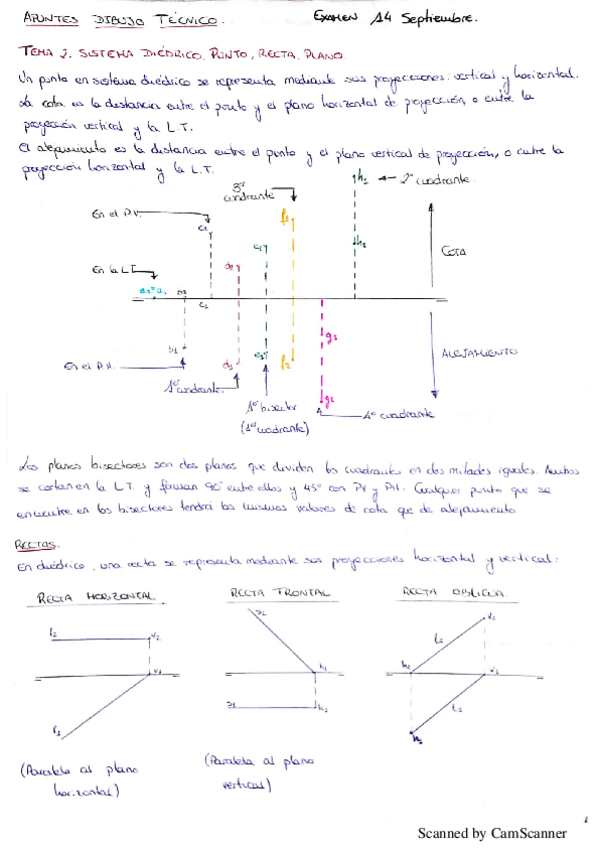 APUNTES DIBUJO TÉCNICO. EXAMEN 14 Septiembre.
TEMA 2. SISTEMA DIÉDRICO, PUNTO, RECTA, PLANO.
Un punto en sistema diédrico se representa mediante sus proyecciones: vertical y horizontal.
La cota es la distancia entre el punto y el plano horizontal de proyección, o entre la
proyección vertical y la L.T.
El alejamiento es la distancia entre el punto y el plano vertical de proyección, o entre la
proyección horizontal y la L.T.
h1 2º cuadrante.
3er
cuadrante
f1
En el P.V.
c2
h2
COTA
En la L.T.
b2
c1
b1
g2
ALEJAMIENTO
En el P.H.
d1
f2
1er cuadrante.
g1
1er bisector
(1er cuadrante)
4º cuadrante
Los planos bisectores son dos planos que dividen los cuadrantes en dos mitades iguales. Ambos
se cortan en la L.T. y forman 90º entre ellos y 45º con PV y PH. Cualquier punto que se
encuentre en los bisectores tendrá los mismos valores de cota que de alejamiento
RECTAS.
En diédrico, una recta se representa mediante sus proyecciones horizontal y vertical:
RECTA HORIZONTAL RECTA FRONTAL RECTA OBLICUA
r2 v2
s2
v2
v1
h1
r1
h2
(Paralela al plano
horizontal)
(Paralela al plano
vertical)
1
Scanned by CamScanner